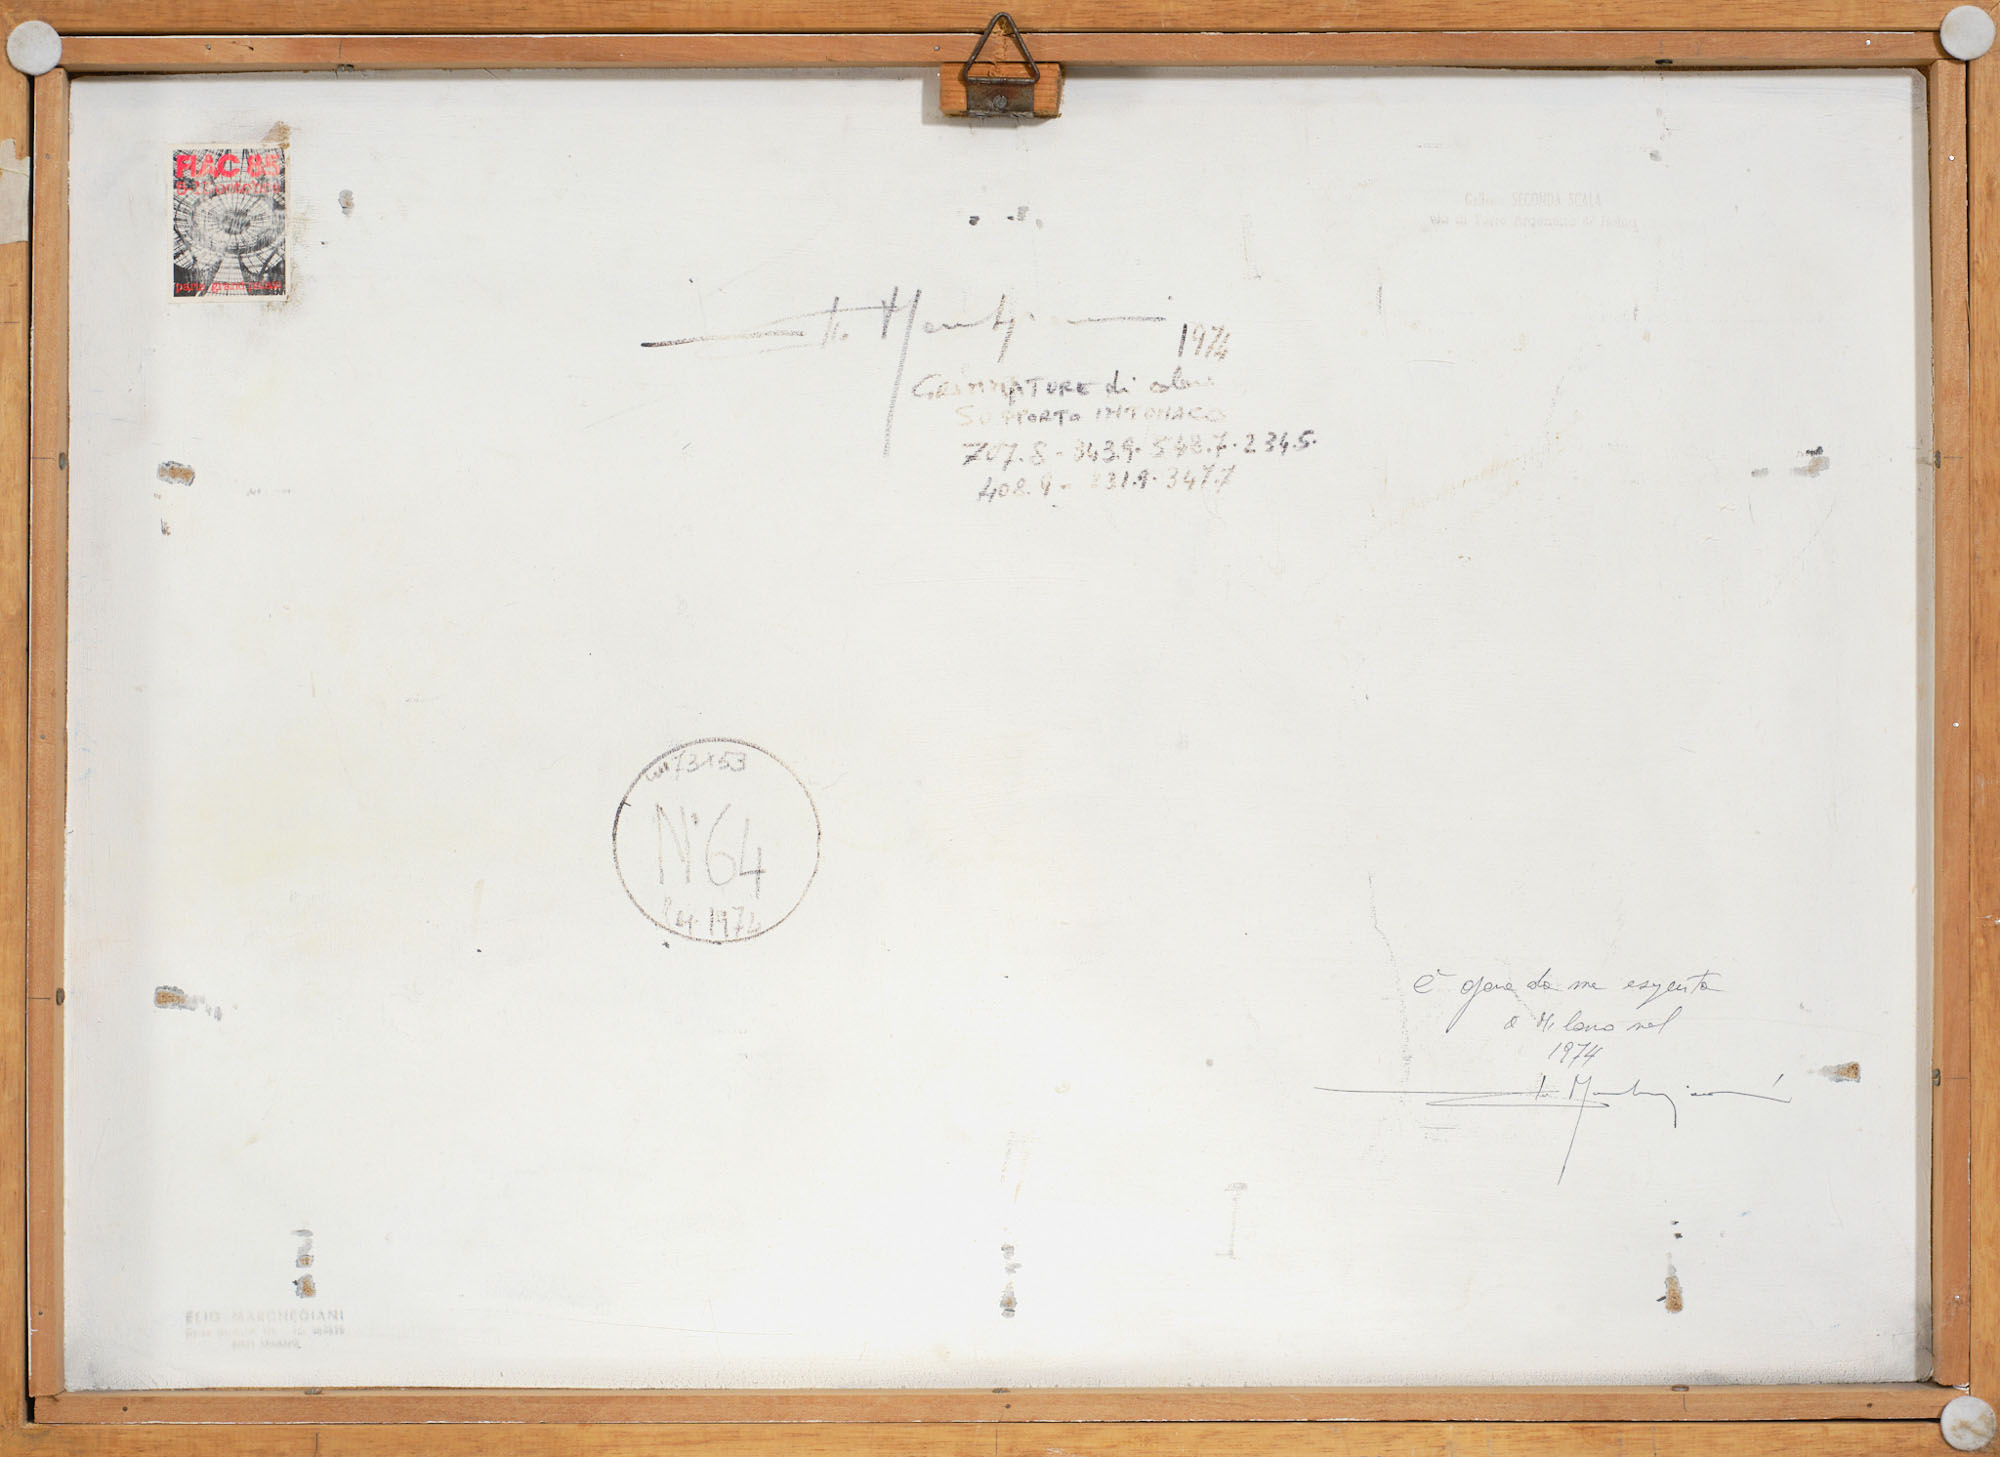 FIAC 85
paris grand palais
SECONDA SCALA
Elio Marchegiani 1974
GRAMMATURE di colore
SUPPORTO INTONACO
707.8 - 343.9. 548.7. 234.5.
408.9 - 331.9. 347.7
73153
N° 64
1974
è opera da me eseguita
a Milano nel
1974
Elio Marchegiani
ELIO MARCHEGIANI